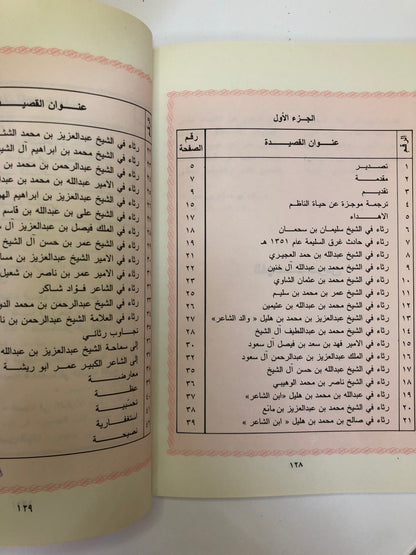 الجزء الأول
الرقم عنوان القصيدة رقم الصفحة
١ تصدير ٥
٢ مقدمة ٧
٣ تقديم ٩
٤ ترجمة موجزة عن حياة الناظم ١٥
٥ الاهداء ١٧
٦ رثاء في الشيخ سليمان بن سحمان ١٨
٧ رثاء في حادث غرق السليمة عام ١٣٥١ هـ ١٩
٨ رثاء في الشيخ عبدالله بن حمد العجيري ٢١
٩ رثاء في الشيخ محمد بن عبدالله آل خنين ٢٢
١٠ رثاء في الشيخ محمد بن عثمان الشاوي ٢٣
١١ رثاء في الشيخ عمر بن محمد بن سليم ٢٥
١٢ رثاء في الشيخ محمد بن عبدالله بن عثيمين ٢٦
١٣ رثاء في الشيخ عبدالعزيز بن محمد بن هليل « والد الشاعر» ٢٧
١٤ رثاء في الشيخ محمد بن عبداللطيف آل الشيخ ٢٨
١٥ رثاء في الامير فهد بن سعد بن فيصل آل سعود ٣٠
١٦ رثاء في الملك عبدالعزيز بن عبدالرحمن آل سعود ٣٢
١٧ رثاء في الشيخ عبدالله بن حسن آل الشيخ ٣٥
١٨ رثاء في الشيخ ناصر بن محمد الوهيبي ٣٦
١٩ رثاء في عبدالله بن محمد بن هليل «ابن الشاعر» ٣٧
٢٠ رثاء في الشيخ محمد بن عبدالعزيز بن مانع ٣٨
٢١ رثاء في صالح بن محمد بن هليل « ابن الشاعر » ٣٩
١٢٨
عنوان القصيـ
رثاء في الشيخ عبدالعزيز بن محمد
رثاء في الشيخ محمد بن ابراهيم آل
رثاء في الشيخ عبدالرحمن بن محمد
رثاء في الامير عبدالله بن محمد بن
رثاء في الشيخ عبدالعزيز بن ابراهيم
رثاء في الشيخ علي بن عبدالله بن قاسم
رثاء في الملك فيصل بن عبدالعزيز
رثاء في الشيخ عمر بن حسن آل الشيخ
رثاء في الامير عبدالعزيز بن مساعد
رثاء في الشيخ عمر بن ناصر بن
رثاء في الشاعر فؤاد شاكر
رثاء في الشيخ عبدالرحمن بن محمد
رثاء في العلامة الشيخ عبدالرحمن بن
تجاوب رثائي
إلى سماحة الشيخ عبدالعزيز بن عبدالله
إلى الشاعر الكبير عمر ابو ريشة
معارضة
عظة
تخميسية
استغفارية
نصيحة
١٢٩